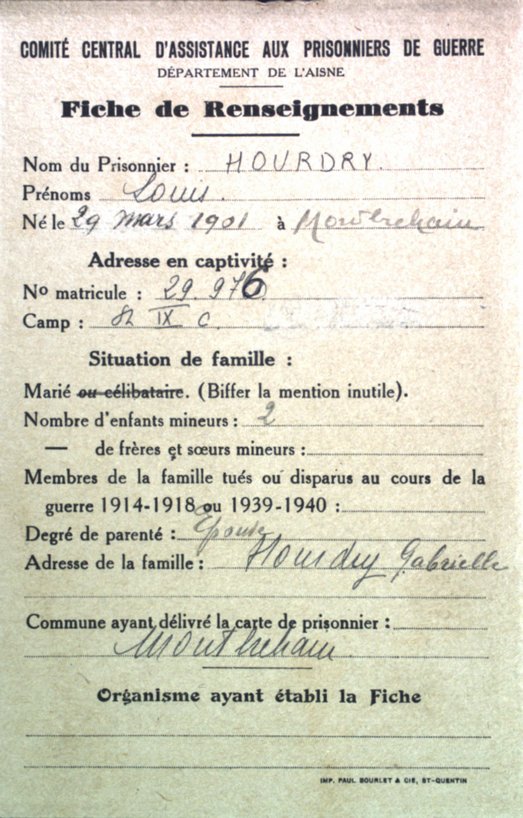 COMITÉ CENTRAL D'ASSISTANCE AUX PRISONNIERS DE GUERRE
DÉPARTEMENT DE L'AISNE
Fiche de Renseignements
Nom du Prisonnier : HOURDRY.
Prénoms Louis.
Né le 29 mars 1901 à Montbrehain
Adresse en captivité :
No matricule : 29.976
Camp : St IX C.
Situation de famille :
Marié ou célibataire. (Biffer la mention inutile).
Nombre d'enfants mineurs : 2
— de frères et sœurs mineurs :
Membres de la famille tués ou disparus au cours de la
guerre 1914-1918 ou 1939-1940 :
Degré de parenté : Epouse
Adresse de la famille : Hourdry Gabrielle
Commune ayant délivré la carte de prisonnier :
Montbrehain.
Organisme ayant établi la Fiche
IMP. PAUL BOURLET & CIE, ST-QUENTIN